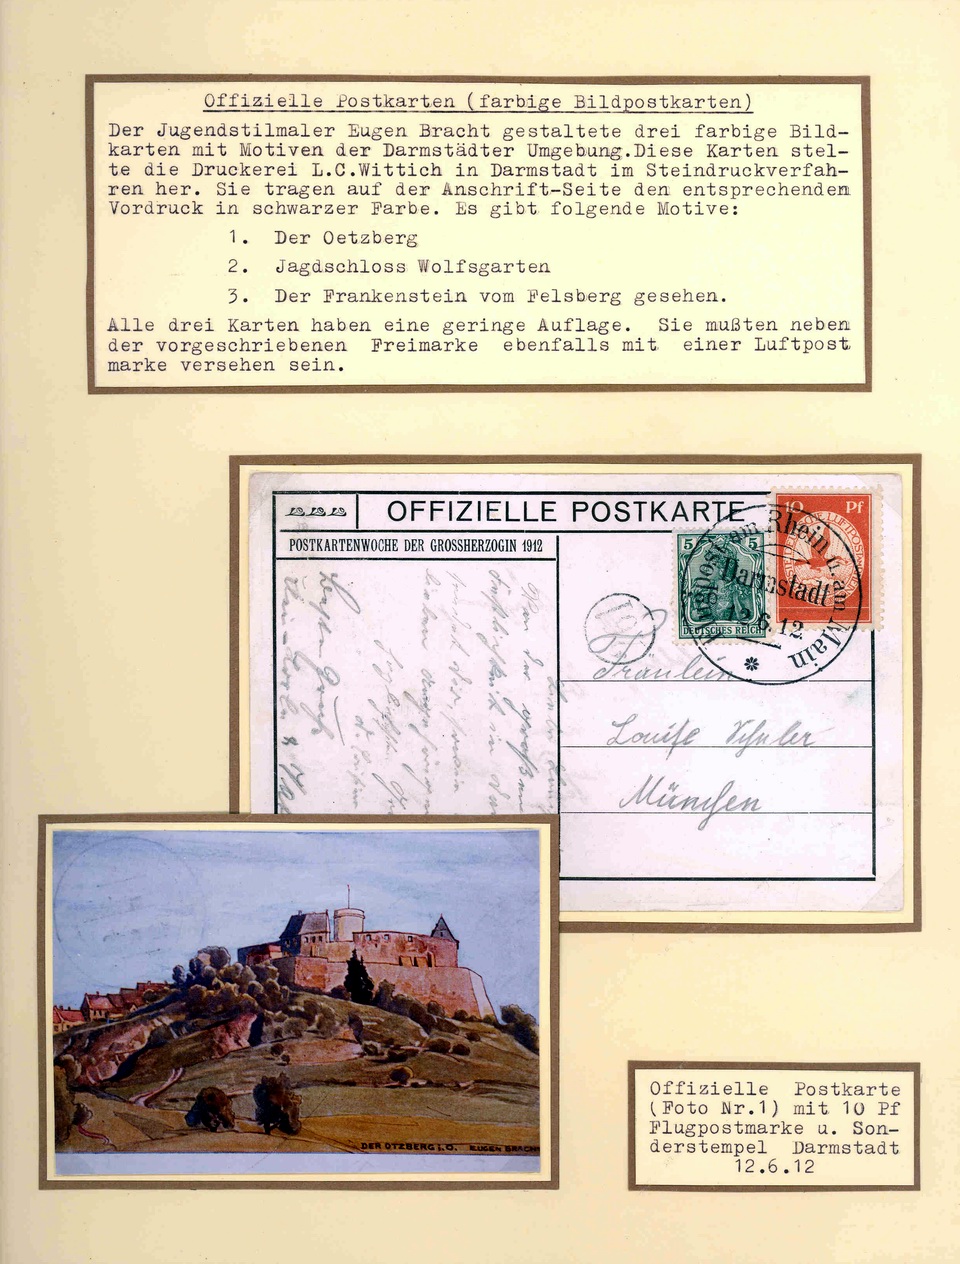 Offizielle Postkarten (farbige Bildpostkarten)
Der Jugendstilmaler Eugen Bracht gestaltete drei farbige Bild-
karten mit Motiven der Darmstädter Umgebung.Diese Karten stel-
te die Druckerei L.C.Wittich in Darmstadt im Steindruckverfah-
ren her. Sie tragen auf der Anschrift-Seite den entsprechenden
Vordruck in schwarzer Farbe. Es gibt folgende Motive:
1. Der Oetzberg
2. Jagdschloss Wolfsgarten
3. Der Frankenstein vom Felsberg gesehen.
Alle drei Karten haben eine geringe Auflage. Sie mußten neben
der vorgeschriebenen Freimarke ebenfalls mit einer Luftpost
marke versehen sein.
OFFIZIELLE POSTKARTE
POSTKARTENWOCHE DER GROSSHERZOGIN 1912
10 Pf
5 5
DEUTSCHES REICH
Flugpost am Rhein u. am Main
Darmstadt
12.6.12
Fräulein
Louise Schuler
München
DER OTZBERG i. O. EUGEN BRACHT
Offizielle Postkarte
(Foto Nr.1) mit 10 Pf
Flugpostmarke u. Son-
derstempel Darmstadt
12.6.12